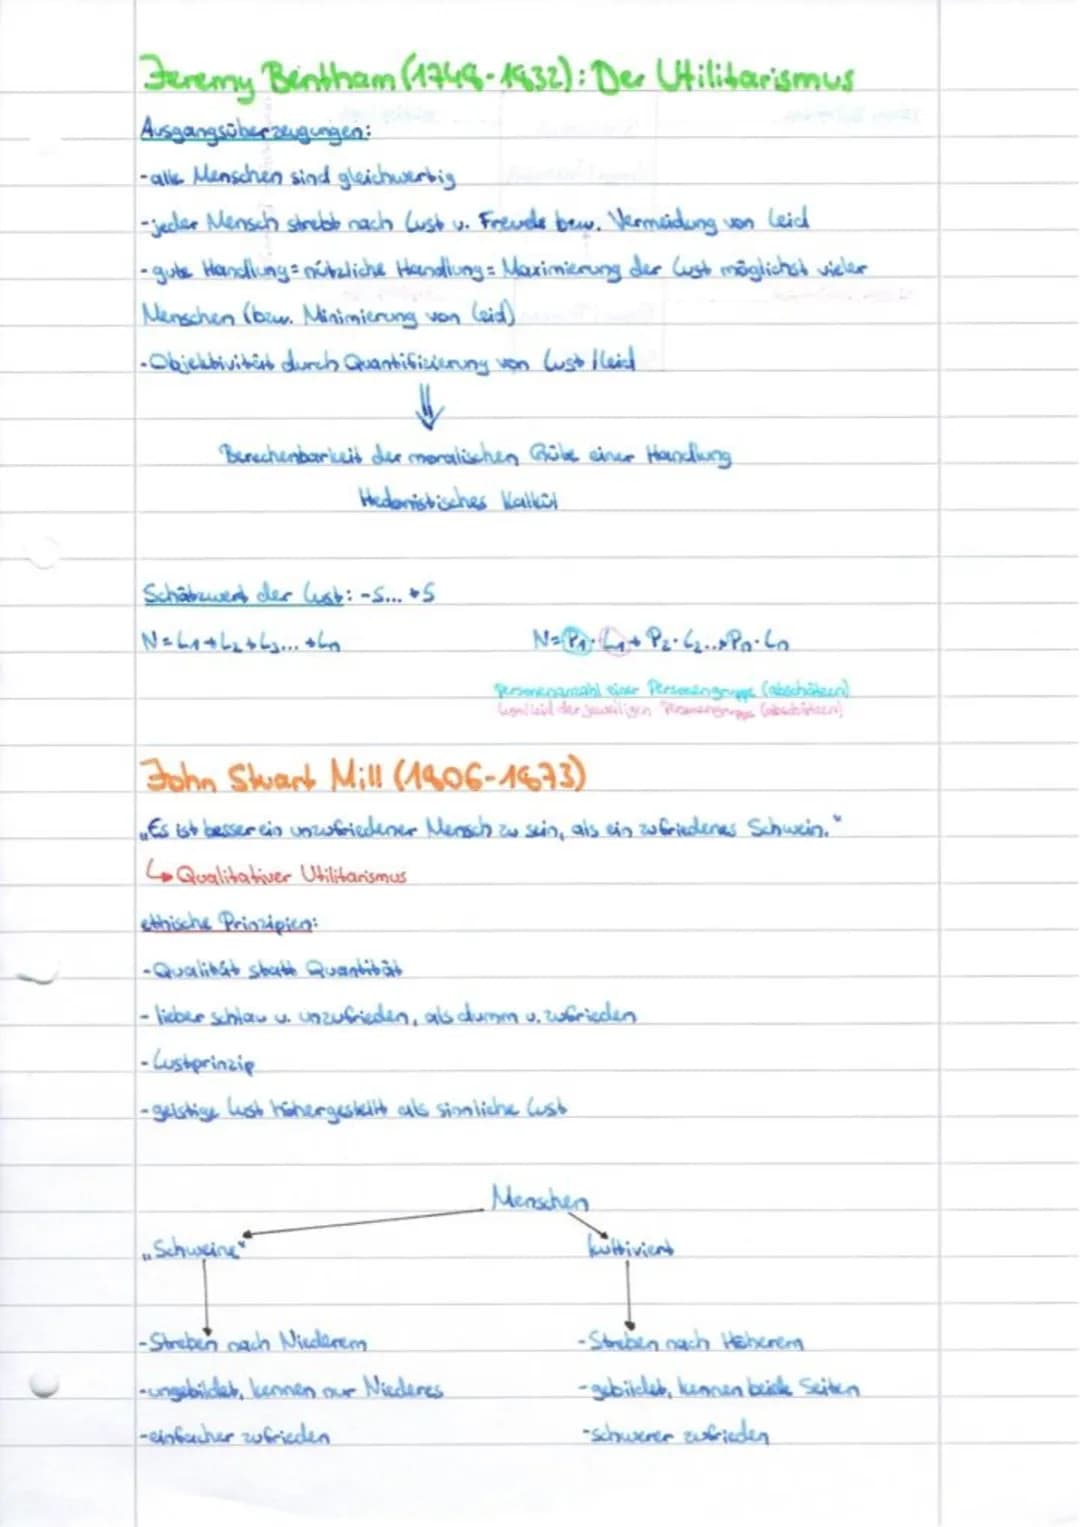 Jeremy Bentham (1748-1832): Der Utilitarismus
Ausgangsüberzeugungen:
-alle Menschen sind gleichwertig
-jeder Mensch strebt nach Lust u. Freude bzw. Vermeidung von Leid
-gute Handlung = nützliche Handlung = Maximierung der Lust möglichst vieler
Menschen (bzw. Minimierung von Leid)
-Objektivität durch Quantifizierung von Lust/Leid
⇓
Berechenbarkeit der moralischen Güte einer Handlung
Hedonistisches Kalkül
Schätzwert der Lust: -5... +5
N=L1+L2+L3... +Ln N=P1·L1+P2·L2...+Pn·Ln
Personenanzahl einer Personengruppe (abschätzen)
Lust/Leid der jeweiligen Personengruppe (abschätzen)
John Stuart Mill (1806-1873)
„Es ist besser ein unzufriedener Mensch zu sein, als ein zufriedenes Schwein."
↳ Qualitativer Utilitarismus
ethische Prinzipien:
-Qualität statt Quantität
- lieber schlau u. unzufrieden, als dumm u. zufrieden
-Lustprinzip
-geistige Lust höhergestellt als sinnliche Lust
Menschen
„Schweine" kultiviert
-Streben nach Niederem -Streben nach Höherem
-ungebildet, kennen nur Niederes -gebildet, kennen beide Seiten
-einfacher zufrieden -schwerer zufrieden